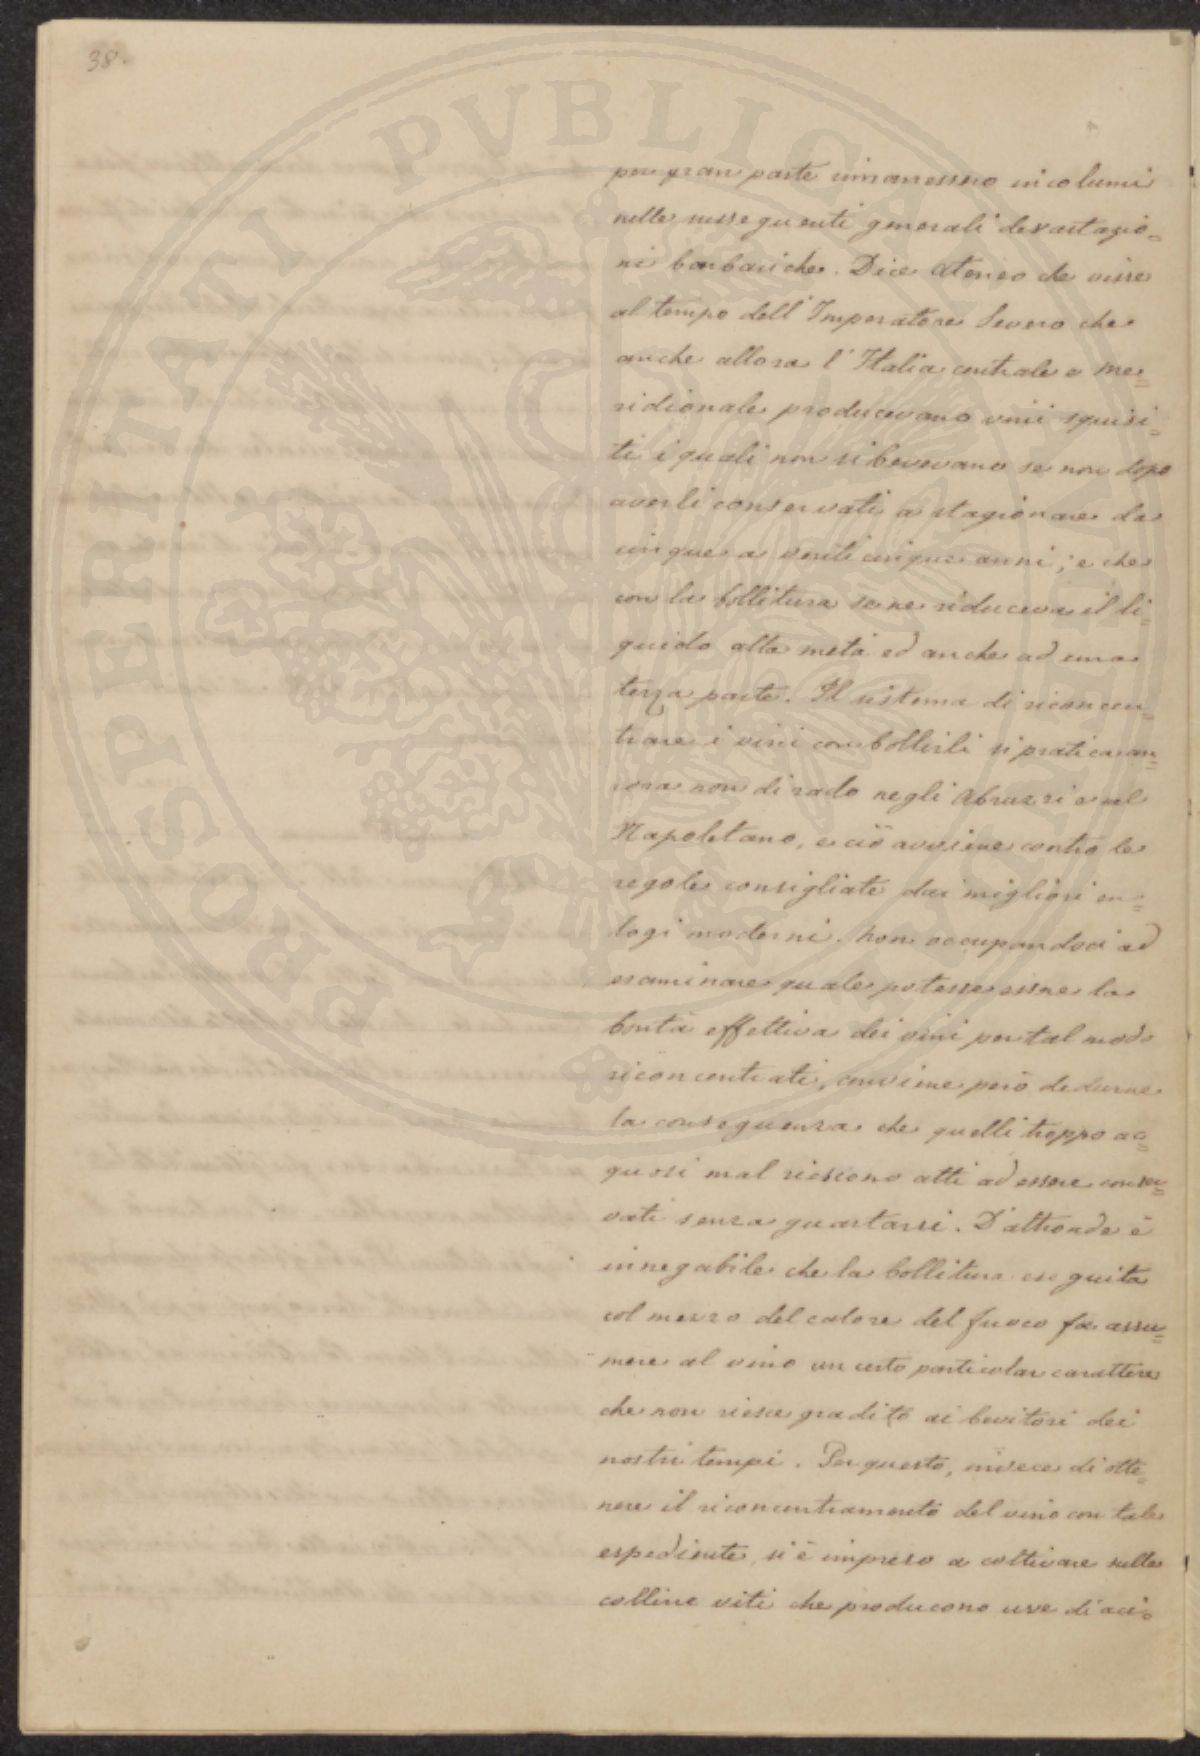 38.
per gran parte rimanessero incolumi
nelle susseguenti generali devastazio=
ni barbariche. Dice Ateneo che visse
al tempo dell'Imperatore Severo che
anche allora l'Italia centrale e me=
ridionale producevano vini squisi=
ti i quali non si bevevano se non dopo
averli conservati a stagionare da
cinque a venti cinque anni; e che
con la bollitura se ne riduceva il li=
quido alla metà ed anche ad una
terza parte. Il sistema di riconcen=
trare i vini con bollirli si pratica an=
cora non di rado negli Abruzzi e nel
Napoletano, e ciò avviene contro le
regole consigliate dai migliori en=
logi moderni. Non occupandoci ad
esaminare quale potesse essere la
bontà effettiva dei vini per tal modo
riconcentrati, conviene però dedurne
la conseguenza che quelli troppo ac=
quosi mal riescono atti ad essere conser=
vati senza guastarsi. D'altronde è
innegabile che la bollitura eseguita
col mezzo del calore del fuoco fa assu=
mere al vino un certo particolar carattere
che non riesce gradito ai bevitori dei
nostri tempi. Per questo, invece di otte=
nere il riconcentramento del vino con tale
espediente, si è impreso a coltivare sulle
colline viti che producono uve di aci=
PROSPERITATI PVBLICAE